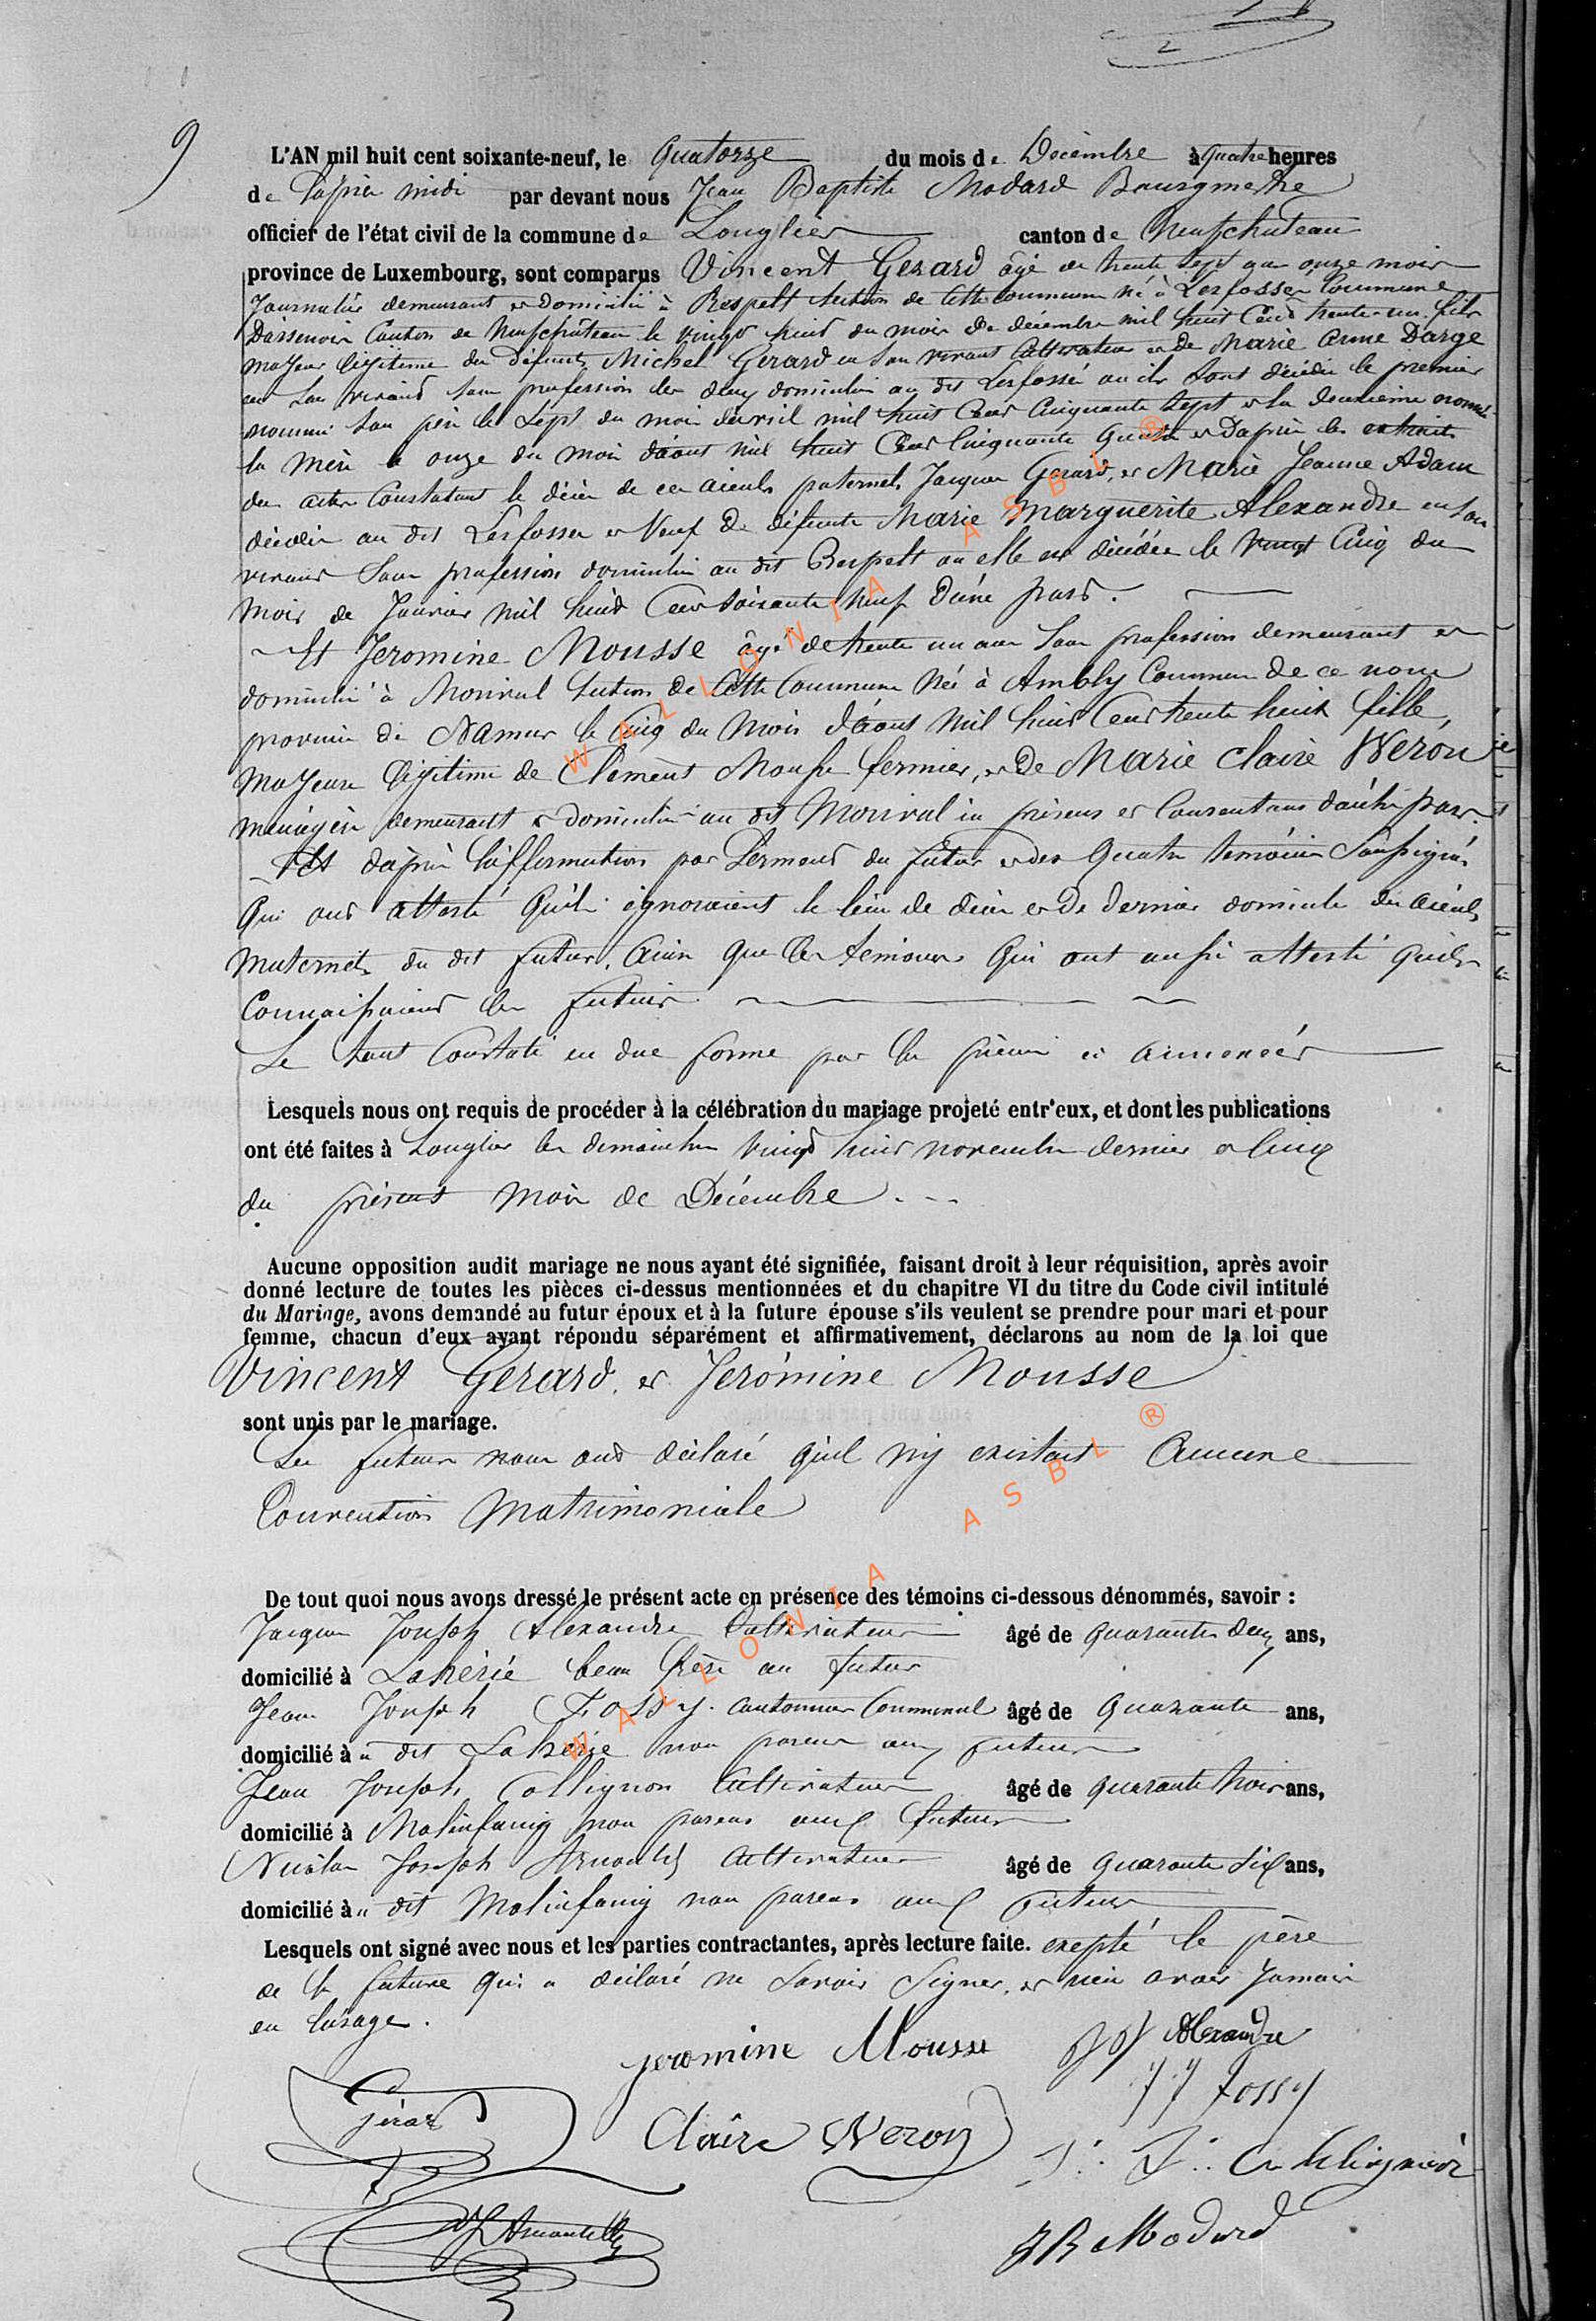 9
L'AN mil huit cent soixante-neuf, le Quatorze du mois de Décembre à quatre heures
de l'après midi par devant nous Jean Baptiste Modard Bourgmestre
officier de l'état civil de la commune de Longlier canton de Neufchateau
province de Luxembourg, sont comparus Vincent Gerard âgé de trente sept ans onze mois
Journalier demeurant et domicilié à Respelt section de cette commune né à Lesfossés Commune
Dassenois Canton de Neufchâteau le vingt huit du mois de décembre mil huit Cent trente un fils
majeur légitime des défunts Michel Gerard en son vivant Cultivateur et de Marie Anne Darge
en son vivant sans profession les deux domiciliés au dit Lesfossé où ils sont décédés le premier
nommé son père le sept du mois davril mil huit Cent Cinquante sept et la deuxième nommée
la mère le onze du mois d'août mil huit Cent Cinquante quatre et Daprès les extraits
des actes Constatant le décès de ces aieuls paternels Jacques Gerard, et Marie Jeanne Adam
décédés au dit Lesfosses et Veuf de défunte Marie Marguerite Alexandre en son
vivant Sans profession domiciliée au dit Respelt où elle est décédée le vingt Cinq du
mois de Janvier mil huit Cent soixante neuf D'une part.
Et Jeromine Mousse âgé de trente un ans Sans profession demeurant et
domicilié à Morival section de Cette Commune Née à Ambly Commune de ce nom
province de Namur le Cinq du mois d'août mil huit Cent trente huit fille
majeure légitime de Clement Mousse fermier, et De Marie Claire Weron
ménagère demeurant et domiciliés au dit Morival ici présens et Consentans d'autre part.
Et d'après l'affirmation par serment du futur et des quatre témoins Soussignés
Qui ont attesté Qu'ils ignoraient le lieu de décès et De dernier domicile des aieuls
maternels du dit futur, Ainsi que les témoins Qui ont aussi attesté quils
Connaissaient les futurs
Le tout Constaté en due forme par les pièces ci annexées
Lesquels nous ont requis de procéder à la célébration du mariage projeté entr'eux, et dont les publications
ont été faites à Longlier les dimanches vingt huit novembre dernier et Cinq
du présent mois de Décembre.
Aucune opposition audit mariage ne nous ayant été signifiée, faisant droit à leur réquisition, après avoir
donné lecture de toutes les pièces ci-dessus mentionnées et du chapitre VI du titre du Code civil intitulé
du Mariage, avons demandé au futur époux et à la future épouse s'ils veulent se prendre pour mari et pour
femme, chacun d'eux ayant répondu séparément et affirmativement, déclarons au nom de la loi que
Vincent Gerard, et Jerómine Mousse
sont unis par le mariage.
Les futurs nous ont déclaré qu'il n'y existait Aucune
Convention Matrimoniale
De tout quoi nous avons dressé le présent acte en présence des témoins ci-dessous dénommés, savoir :
Jacques Joseph Alexandre Cultivateur âgé de quarante deux ans,
domicilié à Lahérie beau frère au futur
Jean Joseph Fossy. cantonnier Communal âgé de Quarante ans,
domicilié à u dit Laherie non parent aux futurs
Jean Joseph Collignon Cultivateur âgé de quarante trois ans,
domicilié à Molinfaing non parens aux futurs
Nicolas Joseph Arnould Cultivateur âgé de quarante six ans,
domicilié à u dit Molinfaing non parens aux futurs
Lesquels ont signé avec nous et les parties contractantes, après lecture faite. exepté le père
de la future qui a déclaré ne Savoir Signer, et n'en avoir Jamais
eu l'usage.
jeromine Mousse JJ Alexandre
JJ Fossy
Gérard Claire Weron
J. J. Collignon
NJ Arnould
JB Modard
WALLONIA ASBL ®
WALLONIA ASBL ®